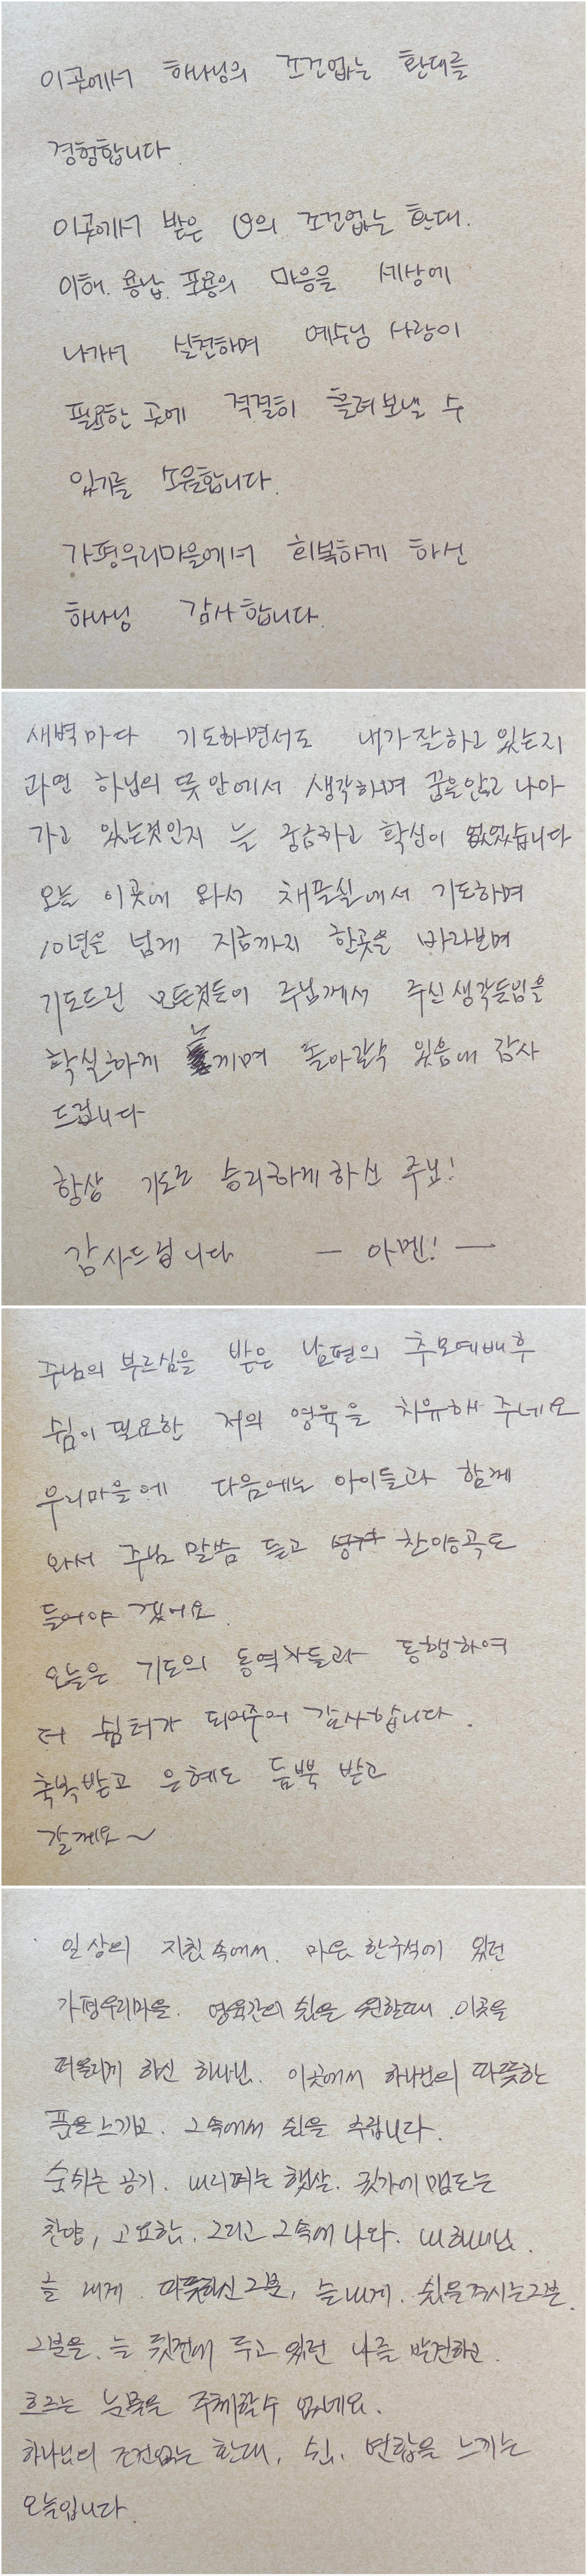 이곳에서 하나님의 조건없는 환대를
경험합니다.
이곳에서 받은 의 조건없는 환대.
이해. 용납. 포용의 마음을 세상에
나가서 실천하며 예수님 사랑이
필요한 곳에 적절히 흘려보낼 수
있기를 소원합니다.
가평우리마을에서 회복하게 하신
하나님 감사합니다.
새벽마다 기도하면서도 내가 잘하고 있는지
과연 하님의 뜻 안에서 생각하며 꿈을안고 나아
가고 있는것인지 늘 궁금하고 확신이 없었습니다
오늘 이곳에 와서 채플실에서 기도하며
10년을 넘게 지금까지 한곳을 바라보며
기도드린 모든것들이 주님께서 주신 생각들임을
확실하게 느끼며 돌아갈수 있음에 감사
드립니다
항상 기도로 승리하게 하신 주님!
감사드립니다 — 아멘! —
주님의 부르심을 받은 남편의 추모예배후
쉼이 필요한 저의 영육을 치유해 주네요
우리마을에 다음에는 아이들과 함께
와서 주님 말씀 듣고 찬양곡도
들어야 겠어요.
오늘은 기도의 동역자들과 동행하여
더 쉼터가 되어주어 감사합니다.
축복받고 은혜도 듬뿍 받고
갈께요~
일상의 지침 속에서. 마음 한구석에 있던
가평우리마을. 영육간의 쉼을 원할때. 이곳을
떠올리게 하신 하나님. 이곳에서 하나님의 따뜻한
품을 느끼고. 그속에서 쉼을 누립니다.
숨쉬는 공기. 내리쬐는 햇살. 귓가에 맴도는
찬양, 고요함. 그리고 그속에 나와. 내 하나님.
늘 내게 따뜻하신 그분, 늘 내게. 쉼을 주시는 그분.
그분을. 늘 뒷전에 두고 있던 나를 발견하고.
흐르는 눈물을 주체할수 없네요.
하나님의 조건없는 환대, 쉼. 연합을 느끼는
오늘입니다.